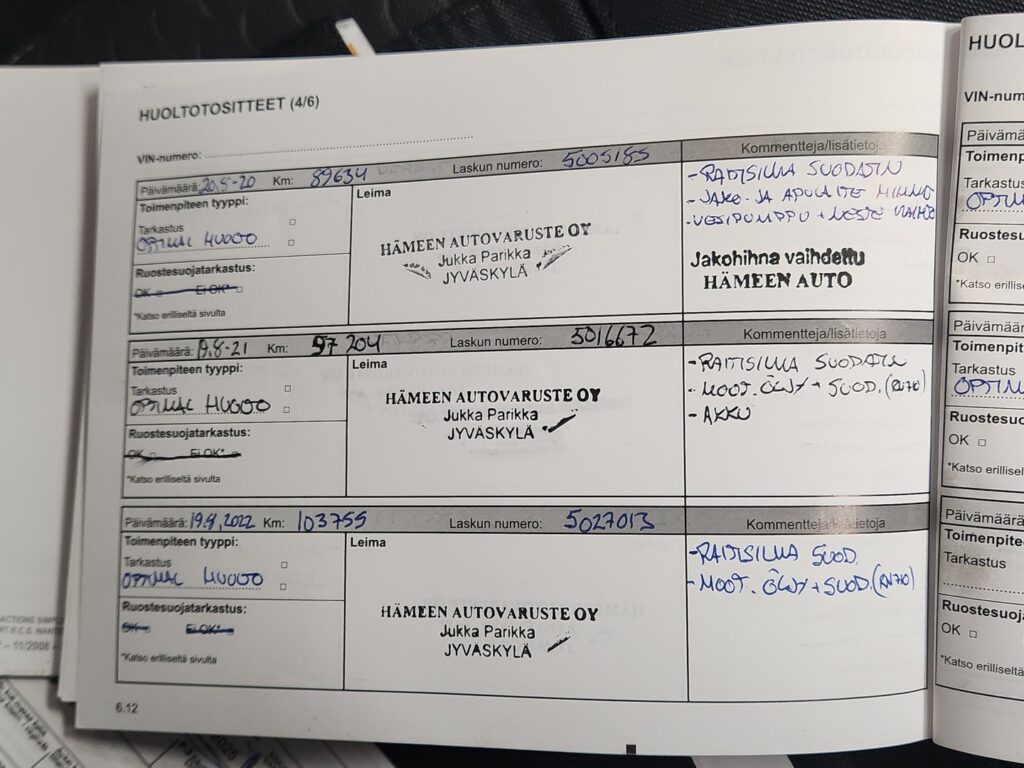 HUOLTOTOSITTEET (4/6)
VIN-numero:
Päivämäärä: 20.8-20 Km: 89634 Laskun numero: 5005185 Kommentteja/lisätietoja
Toimenpiteen tyyppi:
Tarkastus
OPTIMAL HUOLTO
Ruostesuojatarkastus:
OK Ei OK*
*Katso erilliseltä sivulta
Leima
HÄMEEN AUTOVARUSTE OY
Jukka Parikka
JYVÄSKYLÄ
- RAITISILMA SUODATIN
- JAKO- JA APULAITE HIHNAT
- VESIPUMPPU + NESTE VAIHTO
Jakohihna vaihdettu
HÄMEEN AUTO
Päivämäärä: 19.8-21 Km: 97204 Laskun numero: 5016672 Kommentteja/lisätietoja
Toimenpiteen tyyppi:
Tarkastus
OPTIMAL HUOLTO
Ruostesuojatarkastus:
OK Ei OK*
*Katso erilliseltä sivulta
Leima
HÄMEEN AUTOVARUSTE OY
Jukka Parikka
JYVÄSKYLÄ
- RAITISILMA SUODATIN
- MOOT. ÖLJY + SUOD. (RN710)
- AKKU
Päivämäärä: 19.9.2022 Km: 103755 Laskun numero: 5027013 Kommentteja/lisätietoja
Toimenpiteen tyyppi:
Tarkastus
OPTIMAL HUOLTO
Ruostesuojatarkastus:
OK Ei OK*
*Katso erilliseltä sivulta
Leima
HÄMEEN AUTOVARUSTE OY
Jukka Parikka
JYVÄSKYLÄ
- RAITISILMA SUOD.
- MOOT. ÖLJY + SUOD. (RN710)
6.12
HUOL
VIN-num
Päivämä
Toimen
Tarkastu
OPTIM
Ruostesu
OK
*Katso erillise
Päivämää
Toimenpit
Tarkastus
OPTIMA
Ruostesuo
OK
*Katso erilli
Päivämäärä
Toimenpite
Tarkastus
Ruostesuoja
OK
*Katso erillisel